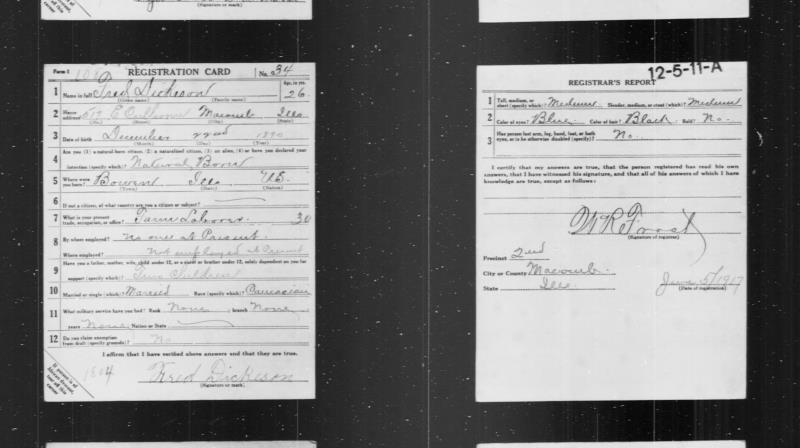 Form 1 REGISTRATION CARD No. 34
1 Name in full Fred Dickeson Age, in yrs. 26
(Given name) (Family name)
2 Home address 519 E Calhoun Macomb Ills
(No.) (Street) (City) (State)
3 Date of birth December 22nd 1890
(Month) (Day) (Year)
4 Are you (1) a natural-born citizen, (2) a naturalized citizen, (3) an alien, (4) or have you declared your
intention (specify which)? Natural Born
5 Where were you born? Bowen Ills US
(Town) (State) (Nation)
6 If not a citizen, of what country are you a citizen or subject?
7 What is your present trade, occupation, or office? Farm Laborer 30
8 By whom employed? No one at Present
Where employed? Not employed at Present
9 Have you a father, mother, wife, child under 12, or a sister or brother under 12, solely dependent on you for
support (specify which)? Two Children
10 Married or single (which)? Married Race (specify which)? Caucasian
11 What military service have you had? Rank None ; branch None
years None ; Nation or State
12 Do you claim exemption from draft (specify grounds)? No
I affirm that I have verified above answers and that they are true.
1804 Fred Dickeson
(Signature or mark)
REGISTRAR'S REPORT 12-5-11-A
1 Tall, medium, or short (specify which)? Medium Slender, medium, or stout (which)? Medium
2 Color of eyes? Blue Color of hair? Black Bald? No
3 Has person lost arm, leg, hand, foot, or both eyes, or is he otherwise disabled (specify)? No
I certify that my answers are true, that the person registered has read his own
answers, that I have witnessed his signature, and that all of his answers of which I have
knowledge are true, except as follows:
W R Frost
(Signature of registrar)
Precinct 2nd
City or County Macomb
State Ills June 5/1917
(Date of registration)